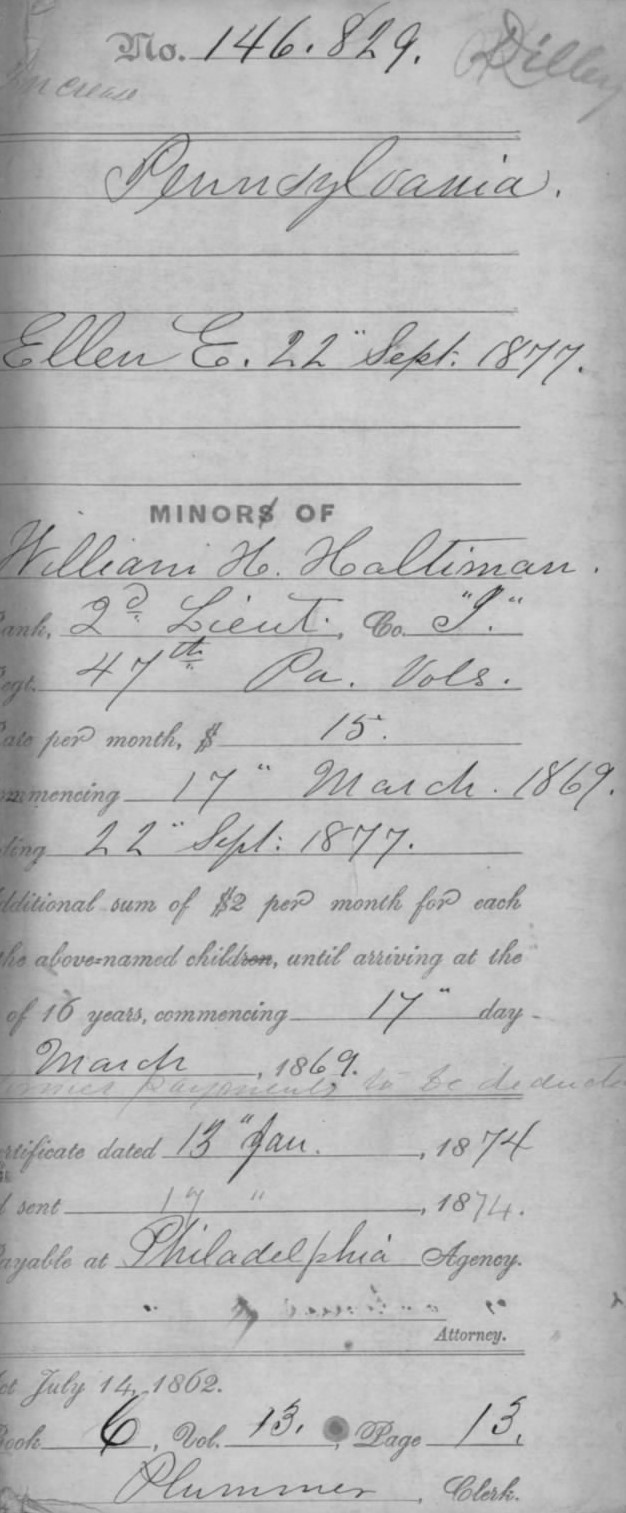 No. 146.829. Dilley
Increase
Pennsylvania.
Ellen E. 22" Sept. 1877.
MINORS OF
William H. Haltiman.
ank, 2d Lieut., Co. "I."
egt. 47th Pa. Vols.
ate per month, $ 15.
mmencing 17" March. 1869.
ding 22" Sept: 1877.
dditional sum of $2 per month for each
he above-named children, until arriving at the
of 16 years, commencing 17" day
March, 1869.
ormer payments to be deducte
rtificate dated 13" Jan., 1874
l sent 17 ", 1874.
ayable at Philadelphia Agency.
Attorney.
ct July 14, 1862.
ook 6, Vol. 13., Page 13.
Plummer, Clerk.